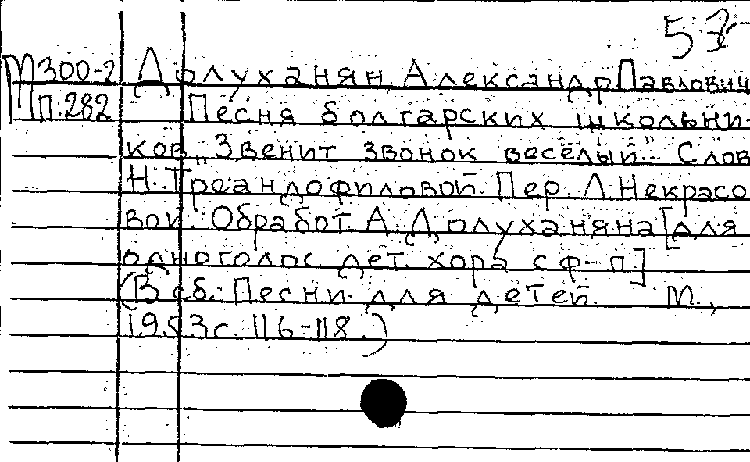 53
М300-2 Долуханян, Александр Павлович
П.282 Песня болгарских школьни-
ков „Звенит звонок веселый". Слов
Н. Треандофиловой. Пер. Л. Некрасо
вой. Обработ. А. Долуханяна [для
одноголос. дет. хора с ф-п.]
(В сб.: Песни для детей. М.,
1953 с. 116-118.)